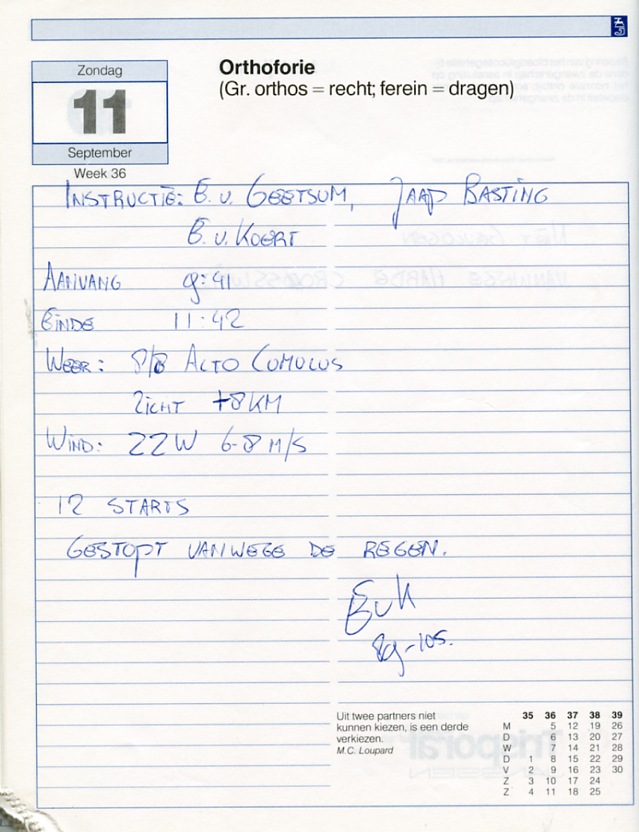 Zondag
11
September
Week 36
Orthoforie
(Gr. orthos = recht; ferein = dragen)
INSTRUCTIE: E. v. GEETSUM, JAAP BASTING
E. v. KOERT
AANVANG 9:41
EINDE 11:42
WEER: 8/8 ALTO CUMULUS
ZICHT +8 KM
WIND: ZZW 6-8 M/S
12 STARTS
GESTOPT VANWEGE DE REGEN.
EvK
Uit twee partners niet
kunnen kiezen, is een derde
verkiezen.
M.C. Loupard
35 36 37 38 39
M 5 12 19 26
D 6 13 20 27
W 7 14 21 28
D 1 8 15 22 29
V 2 9 16 23 30
Z 3 10 17 24
Z 4 11 18 25